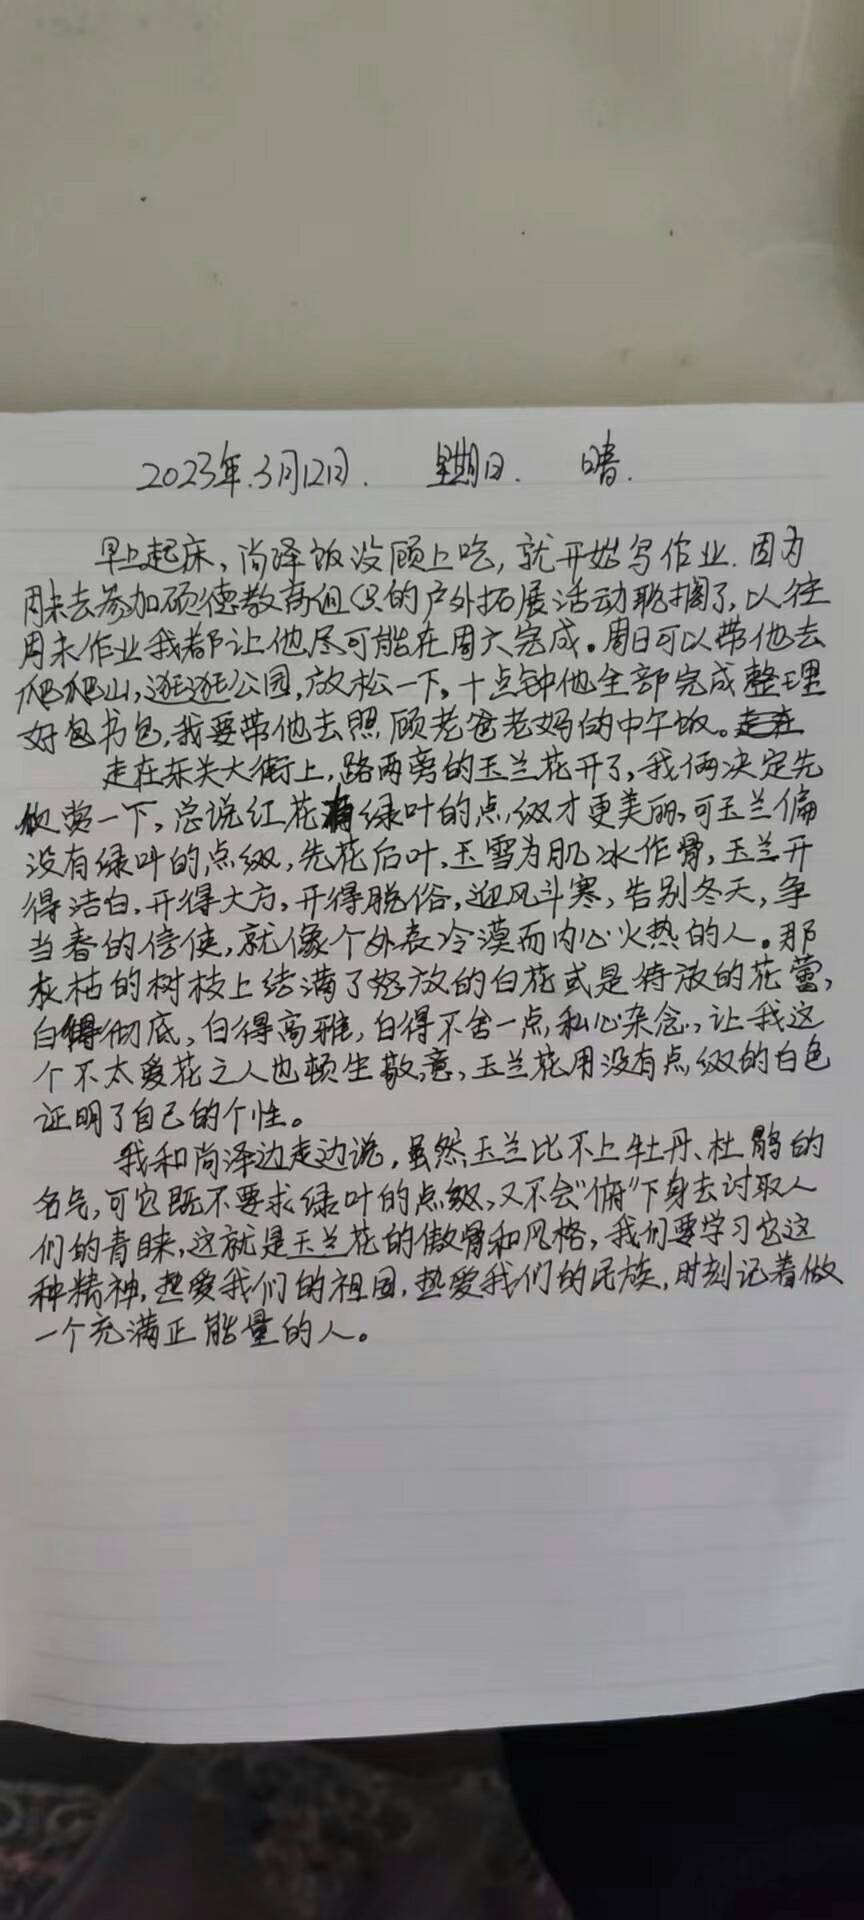 2023年.3月12日. 星期日. 晴.
早上起床,尚泽饭没顾上吃,就开始写作业.因为
周末去参加硕德教育组织的户外拓展活动耽搁了,以往
周末作业我都让他尽可能在周六完成。周日可以带他去
爬爬山,逛逛公园,放松一下,十点钟他全部完成整理
好包书包,我要带他去照顾老爸老妈的中午饭。走在
走在东关大街上,路两旁的玉兰花开了,我俩决定先
欣赏一下,总说红花有绿叶的点缀才更美丽,可玉兰偏
没有绿叶的点缀,先花后叶,玉雪为肌冰作骨,玉兰开
得洁白,开得大方,开得脱俗,迎风斗寒,告别冬天,争
当春的信使,就像个外表冷漠而内心火热的人。那
灰枯的树枝上结满了怒放的白花或是待放的花蕾,
白得彻底,白得高雅,白得不含一点私心杂念,让我这
个不太爱花之人也顿生敬意,玉兰花用没有点缀的白色
证明了自己的个性。
我和尚泽边走边说,虽然玉兰比不上牡丹、杜鹃的
名气,可它既不要求绿叶的点缀,又不会“俯”下身去讨取人
们的青睐,这就是玉兰花的傲骨和风格,我们要学习它这
种精神,热爱我们的祖国,热爱我们的民族,时刻记着做
一个充满正能量的人。